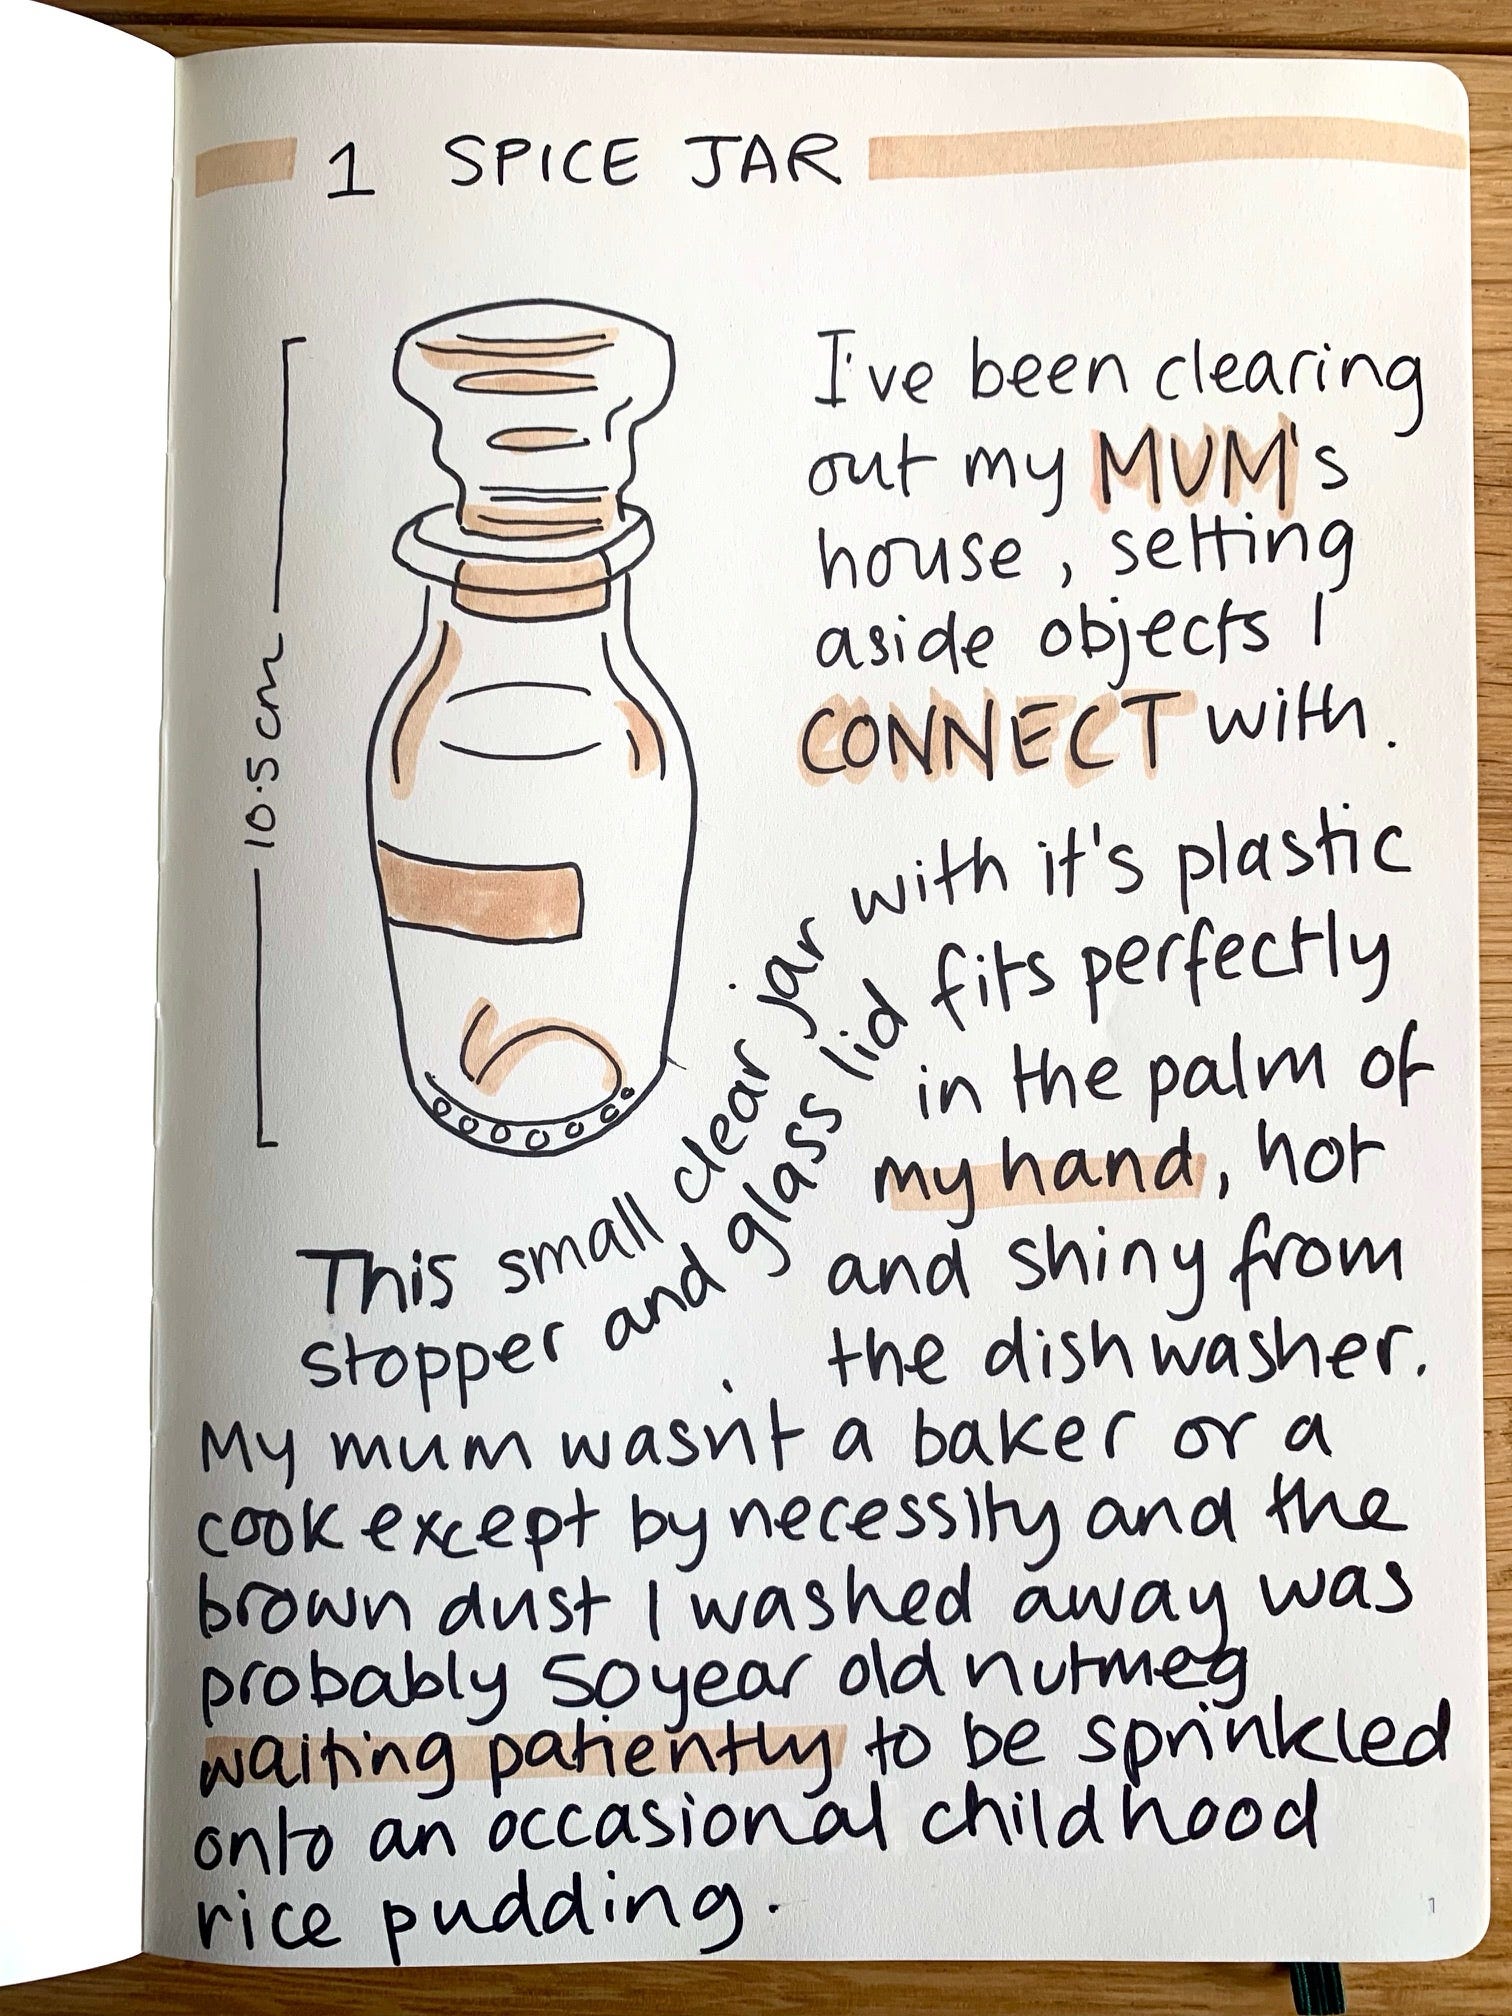 1 SPICE JAR
10.5cm
I've been clearing
out my MUM's
house, setting
aside objects I
CONNECT with.
This small clear jar with it's plastic
stopper and glass lid fits perfectly
in the palm of
my hand, hot
and shiny from
the dishwasher.
My mum wasn't a baker or a
cook except by necessity and the
brown dust I washed away was
probably 50 year old nutmeg
waiting patiently to be sprinkled
onto an occasional childhood
rice pudding.
1